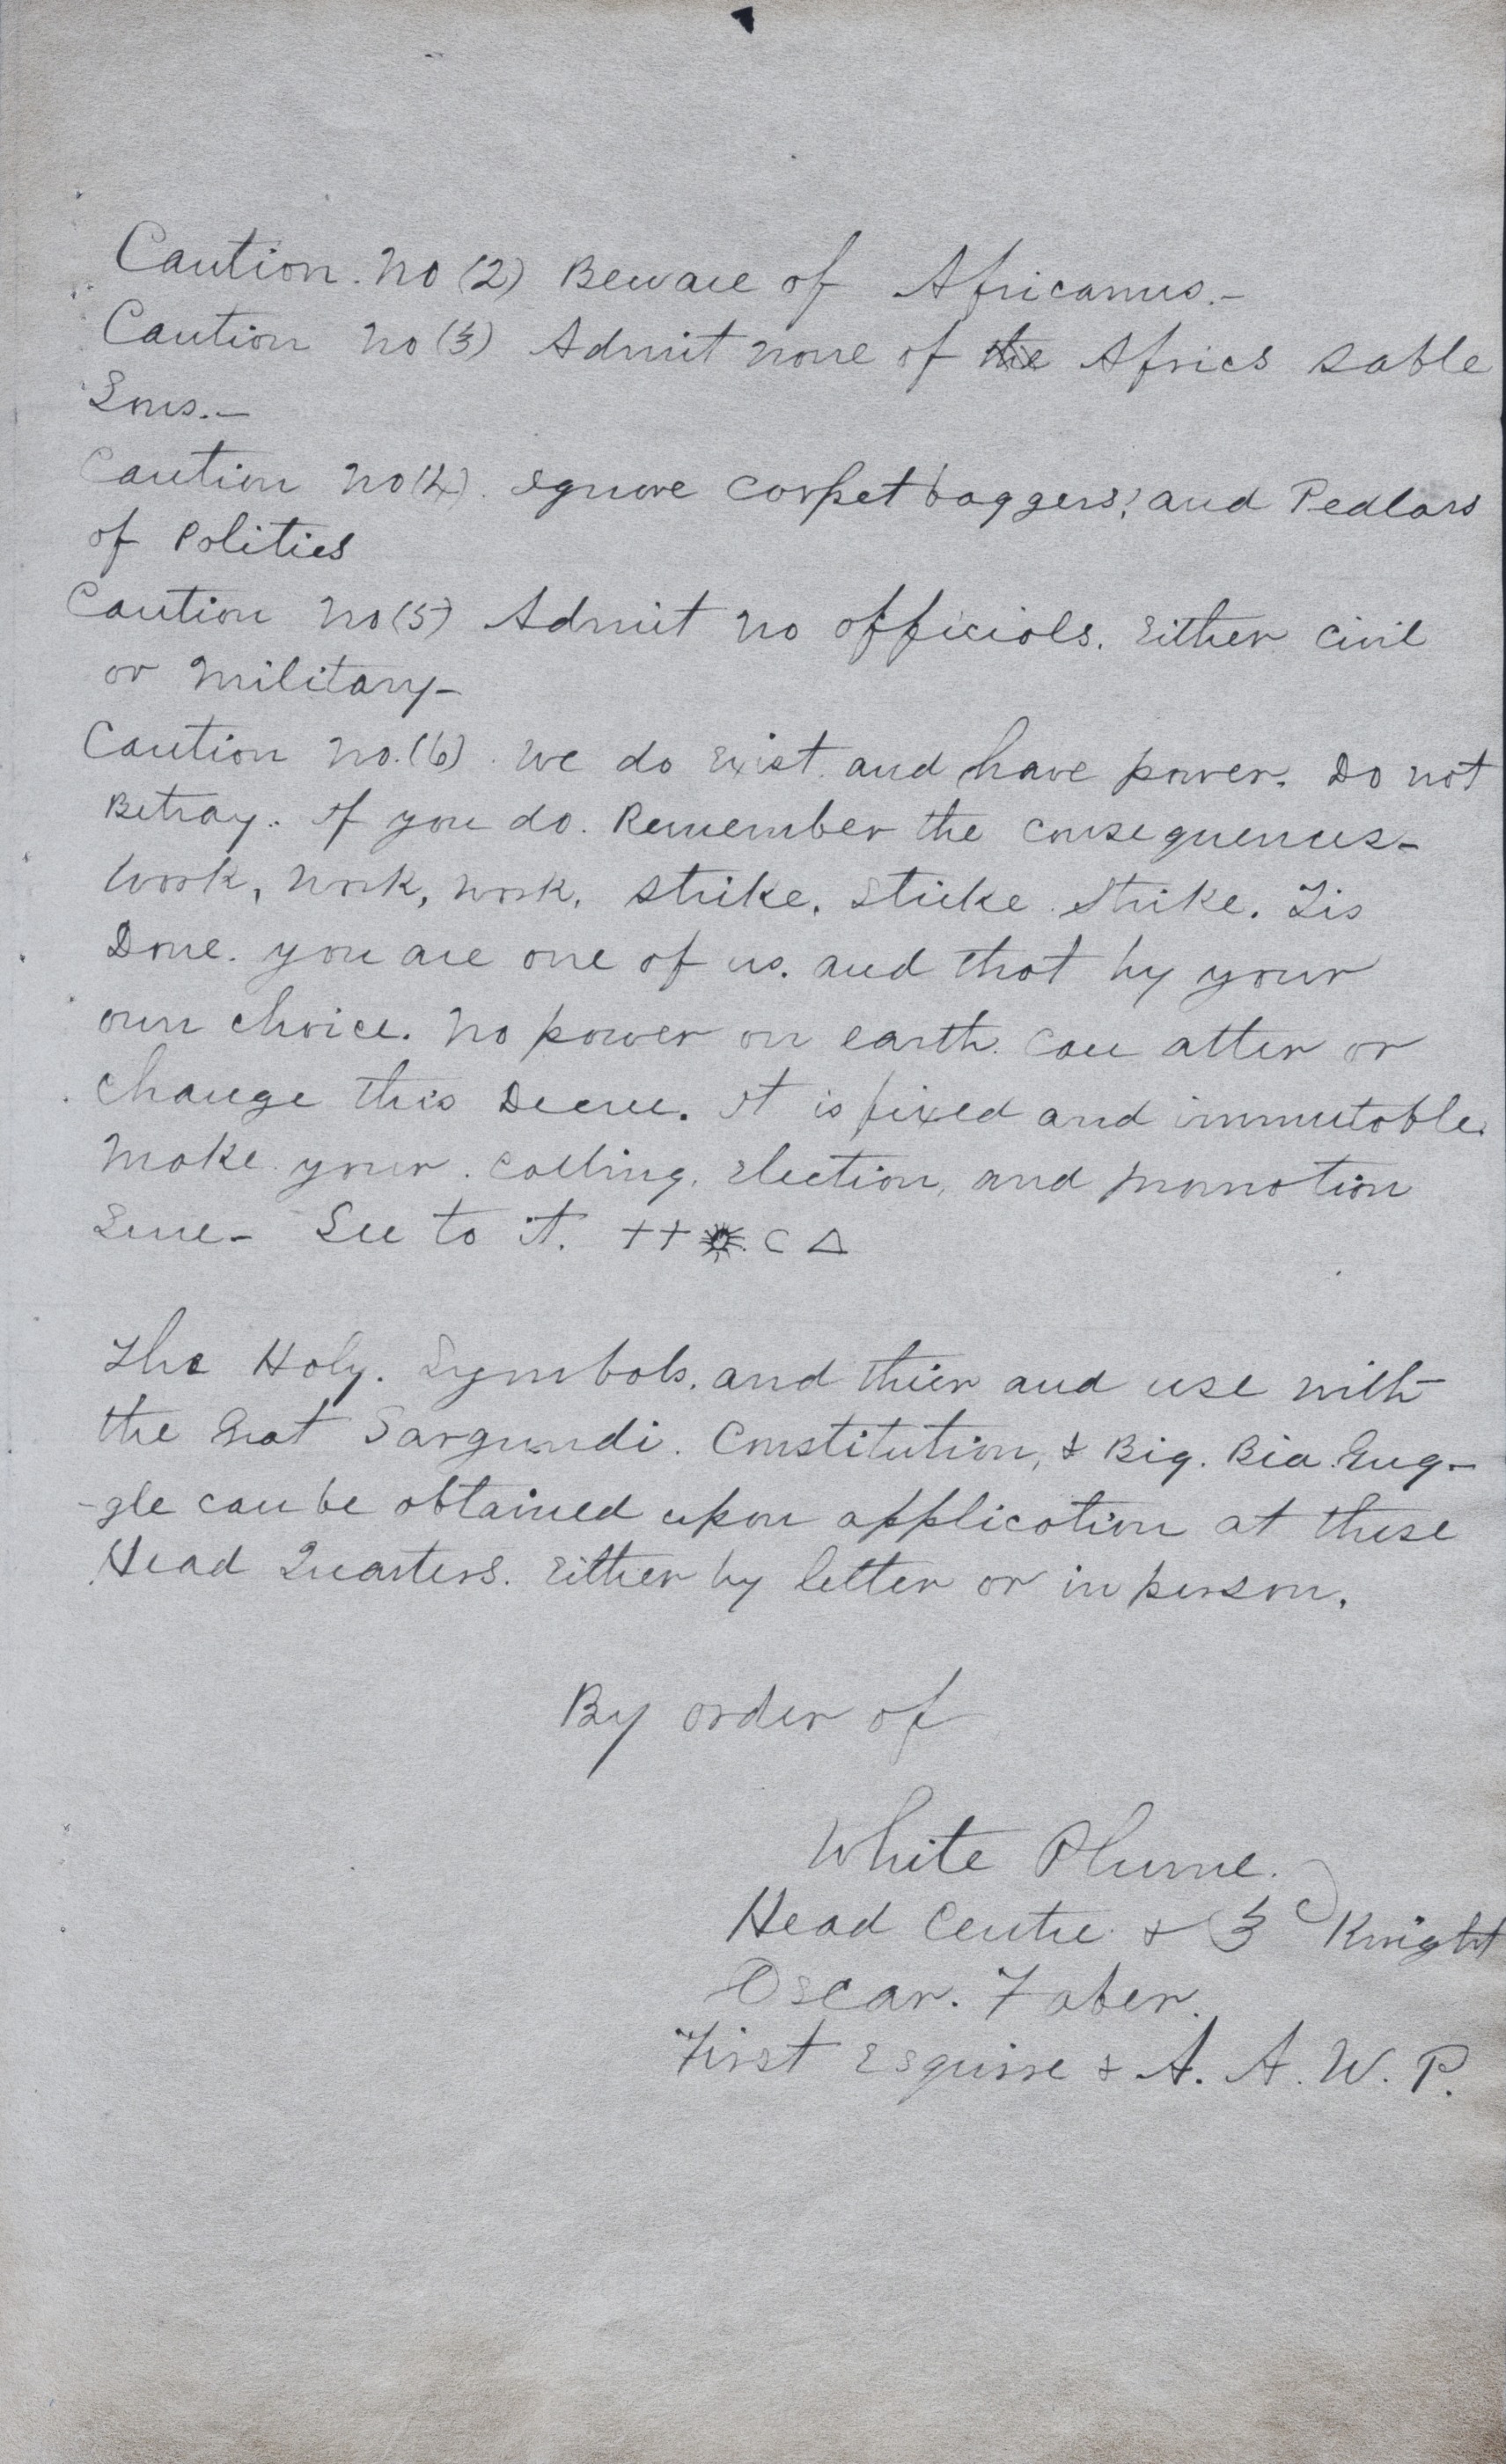 Caution. No (2) Beware of Africanus.-
Caution No (3) Admit none of the Africs sable
Sons.-
Caution No (4). Ignore Carpet baggers, and Pedlars
of Politics
Caution No (5) Admit no officials. Either civil
or Military-
Caution No. (6). We do Exist. and have power. Do not
Betray. If you do. Remember the consequences-
Work, work, work, strike, strike. Strike. Tis
Done. you are one of us. and that by your
own choice. No power on earth. Can alter or
change this Decree. It is fixed and immutable.
Make. your. calling. Election, and promotion
Sure- See to it. ++☼. C △
The Holy. Symbols. and thier and use with
the Great Sargundi. Constitution, & Big. Bia.
-gle can be obtained upon application at these
Head Quarters. Either by letter or in person.
By order of
White Plume.
Head Centre. & 3 Knight
Oscar. Faber.
First Esquire & A. A. W. P.